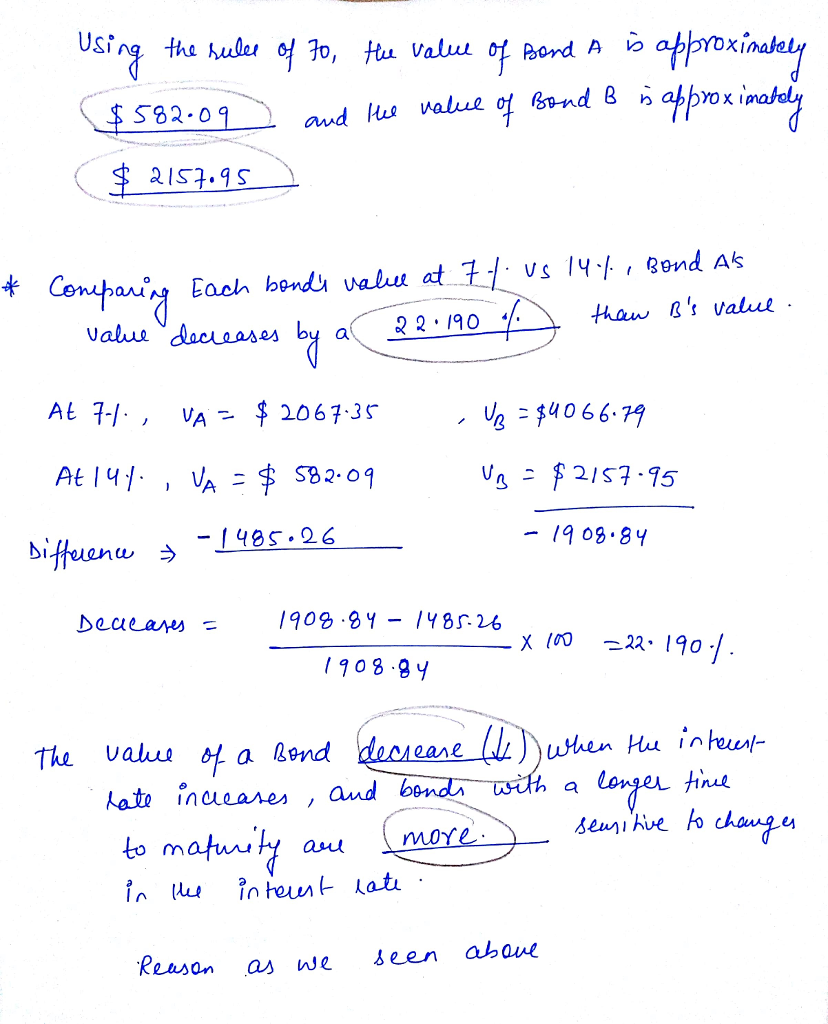 Using the rules of 70, the value of Bond A is approximately
$582.09 and the value of Bond B is approximately
$ 2157.95
* Comparing Each bond's value at 7% vs 14%, Bond A's
value decreases by a 22.190 % than B's value.
At 7%, VA = $ 2067.35 , VB = $4066.79
At 14%, VA = $ 582.09 VB = $2157.95
Difference ⇒ -1485.26 - 1908.84
Decreases = 1908.84 - 1485.26
1908.84 X 100 = 22.190%.
The value of a Bond decrease (↓) when the interest
rate increases, and bonds with a longer time
to maturity are more. sensitive to changes
in the interest rate.
Reason as we seen above